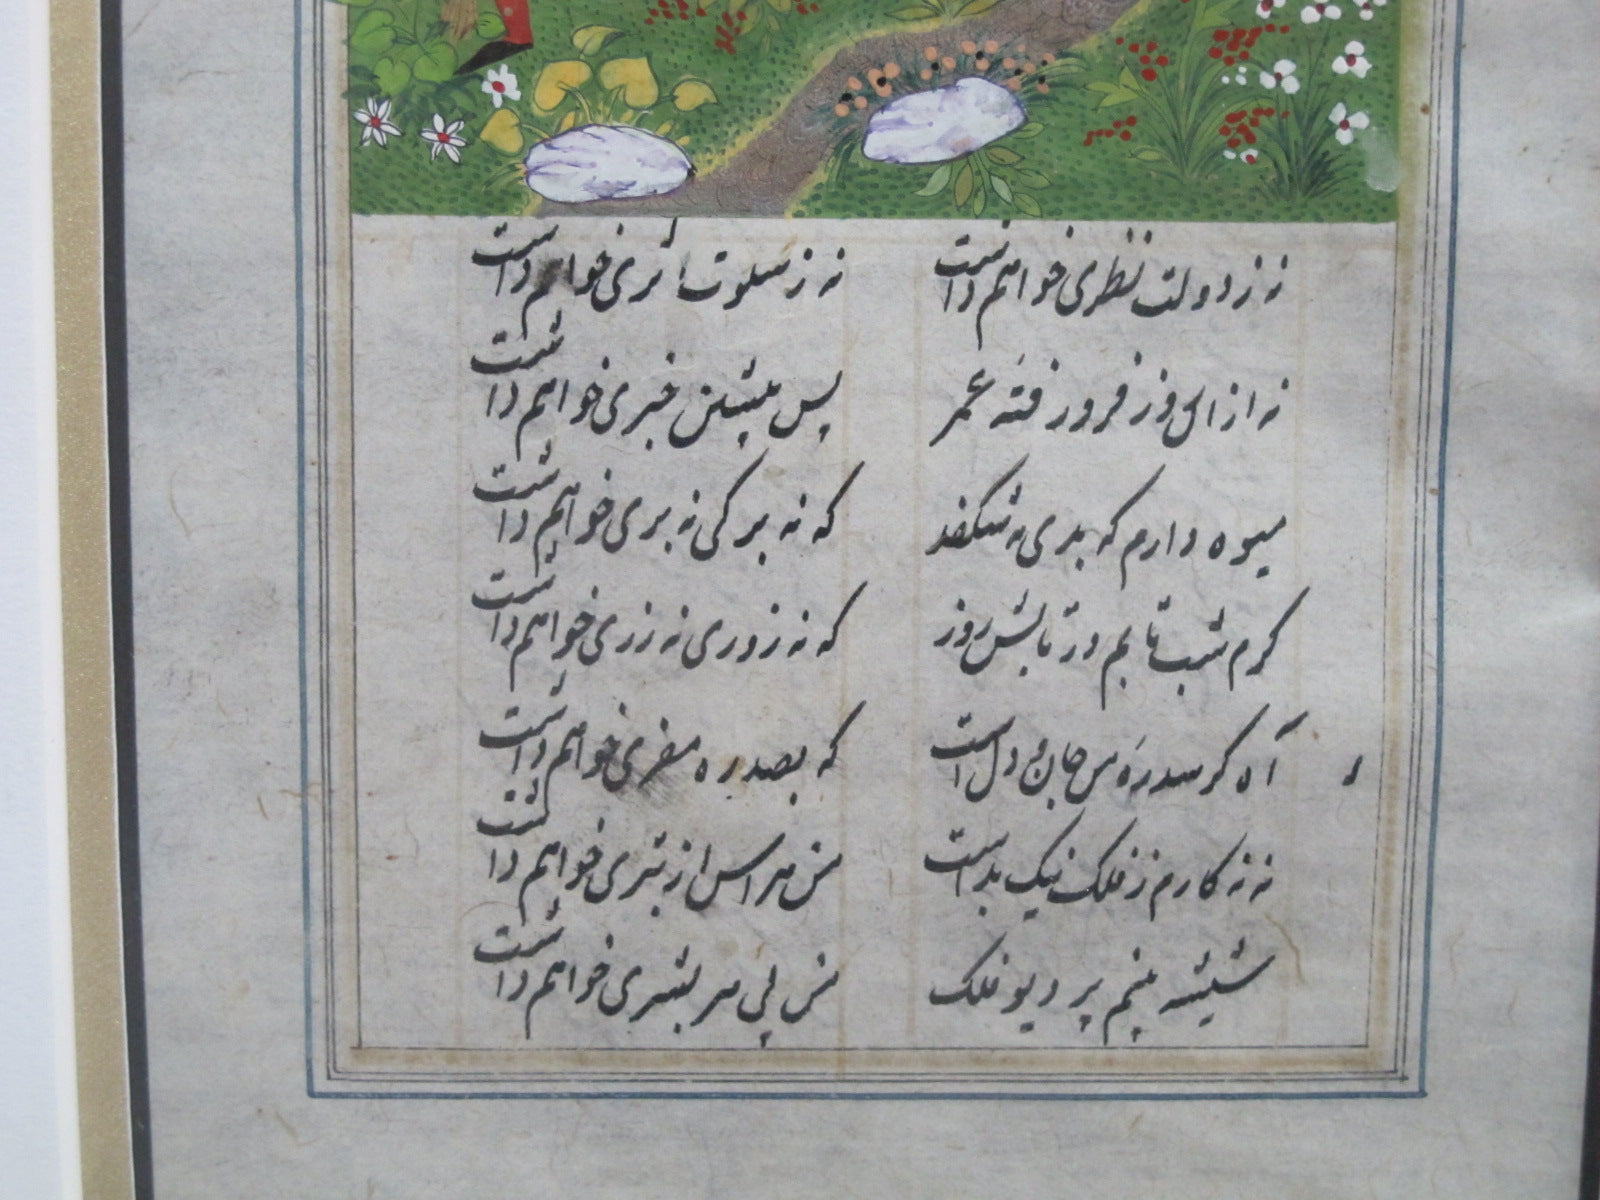 نه ز دولت نظری خواهم داشت نه ز سلوت اثری خواهم داشت
نه از روز فرو رفته عمر پس پیشین خبری خواهم داشت
میوه دارم که بدی نه شکفد که نه برگی نه بری خواهم داشت
کرم شب تابم در تابش روز که نه زوری نه زری خواهم داشت
آه کر سدره من جان و دل است که بصدره سفری خواهم داشت
نه نه کارم ز فلک نیک بد است من هراس از بتری خواهم داشت
شیشه بینم پر دیو فلک من پی هر بشری خواهم داشت